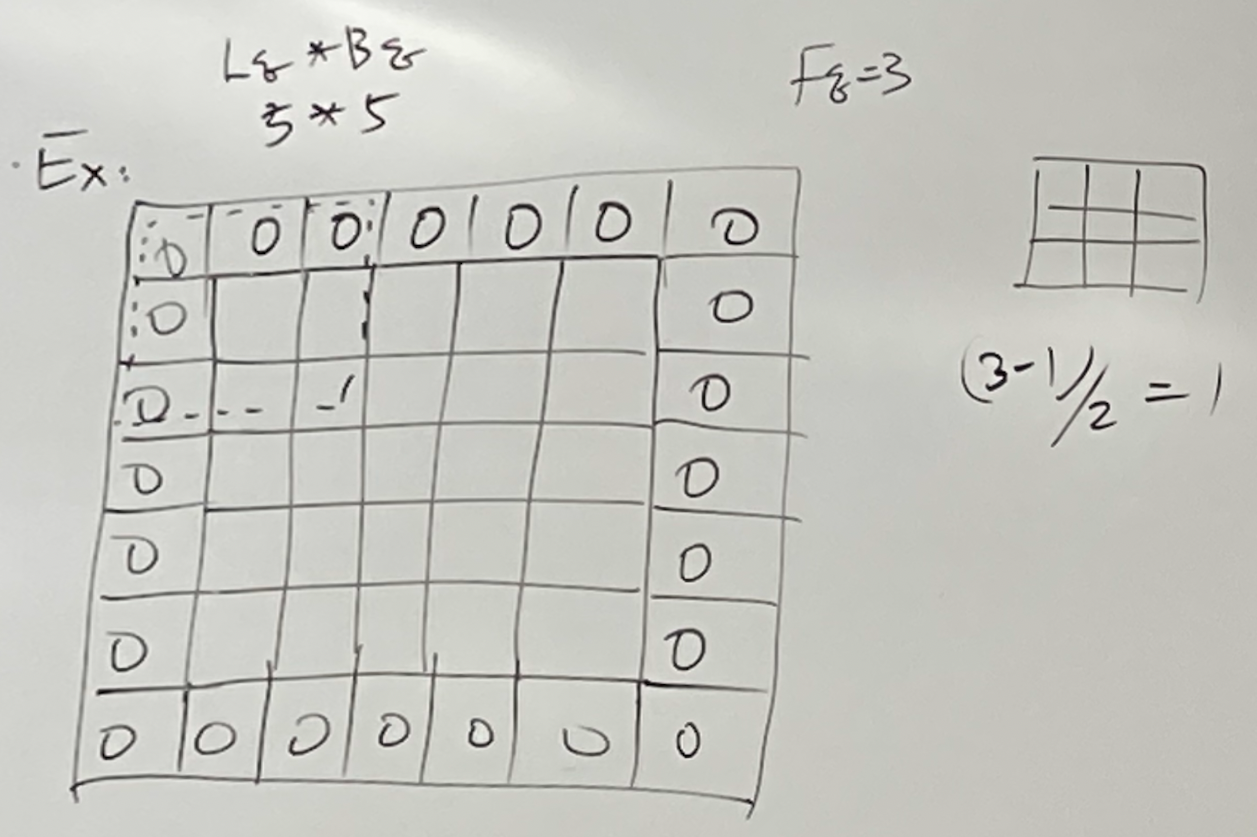 L& * B&
5 * 5
F& = 3
Ex:
0 0 0 0 0 0 0
0 0
0 0
0 0
0 0
0 0
0 0 0 0 0 0 0
(3-1)/2 = 1